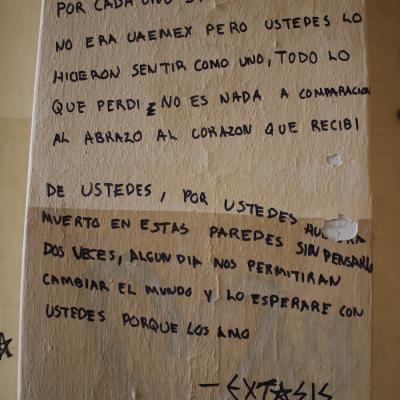 POR CADA UNO
NO ERA UAEMEX PERO USTEDES LO
HICIERON SENTIR COMO UNO, TODO LO
QUE PERDI NO ES NADA A COMPARACION
AL ABRAZO AL CORAZON QUE RECIBI
DE USTEDES, POR USTEDES
MUERTO EN ESTAS PAREDES SIN PENSARLO
DOS VECES, ALGUN DIA NOS PERMITIRAN
CAMBIAR EL MUNDO Y LO ESPERARE CON
USTEDES PORQUE LOS AMO
— EXTASIS